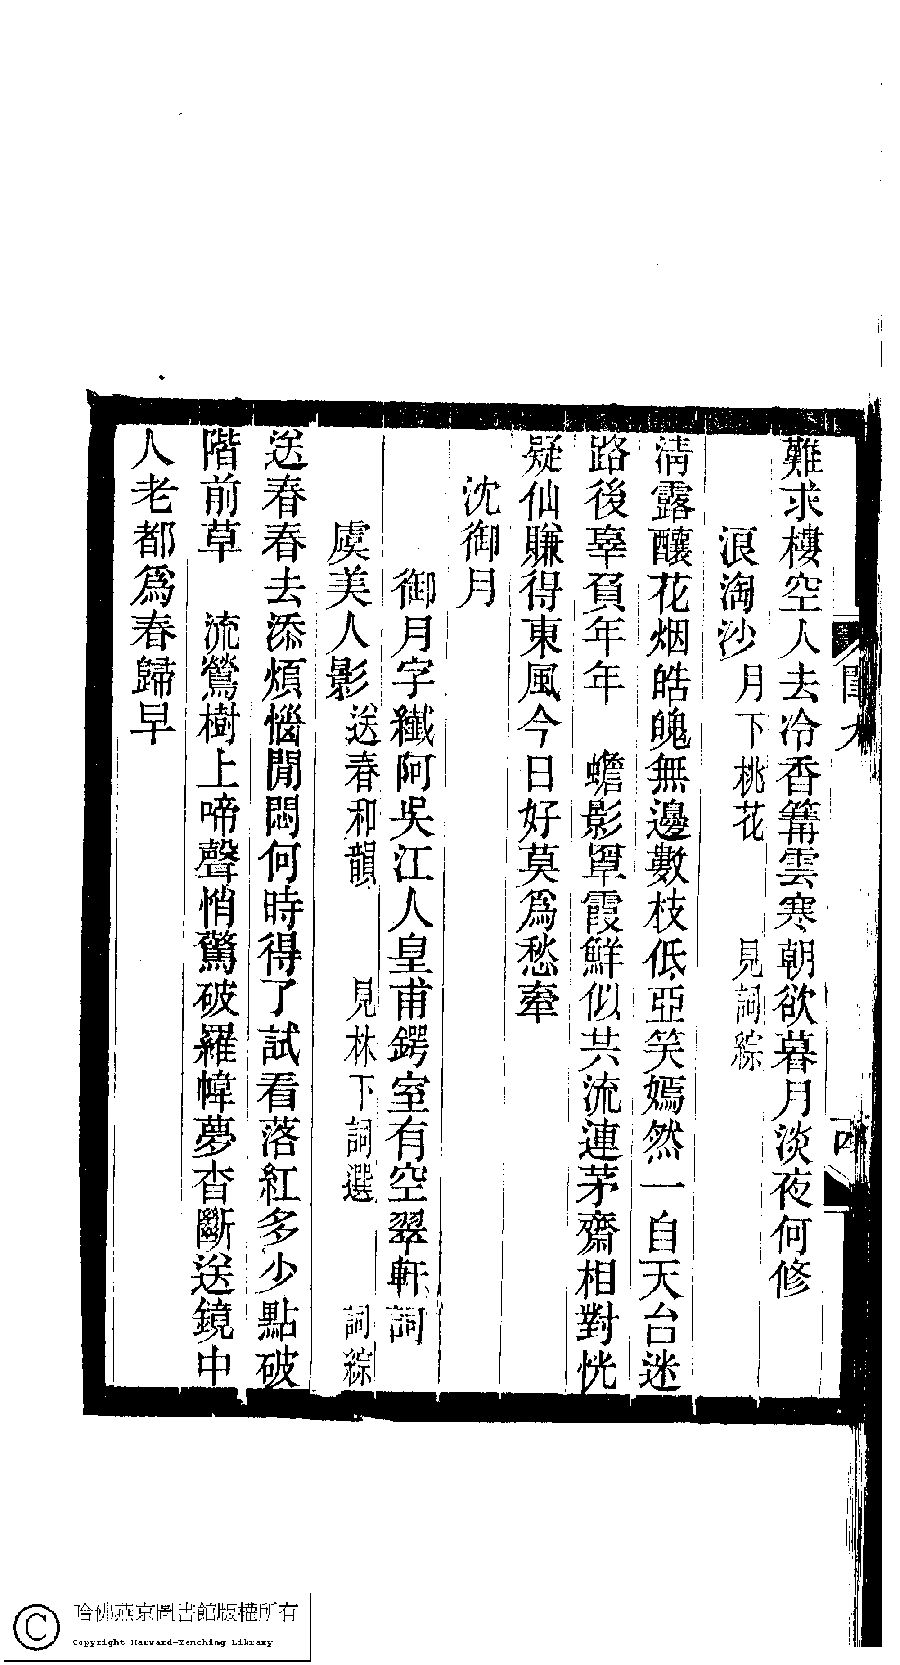 難求樓空人去冷香篝雲寒朝欲暮月淡夜何修
浪淘沙 月下桃花 見詞綜
清露釀花烟皓魄無邊數枝低亞笑嫣然一自天台迷
路後辜負年年 蟾影罩霞鮮似共流連茅齋相對恍
疑仙賺得東風今日好莫爲愁牽
沈御月
御月字纖阿吳江人皇甫鍔室有空翠軒詞
虞美人影 送春和韻 見林下詞選 詞綜
送春春去添煩惱閒悶何時得了試看落紅多少點破
階前草 流鶯樹上啼聲悄驚破羅幃夢杳斷送鏡中
人老都爲春歸早
哈佛燕京圖書館版權所有
Copyright Harvard-Yenching Library